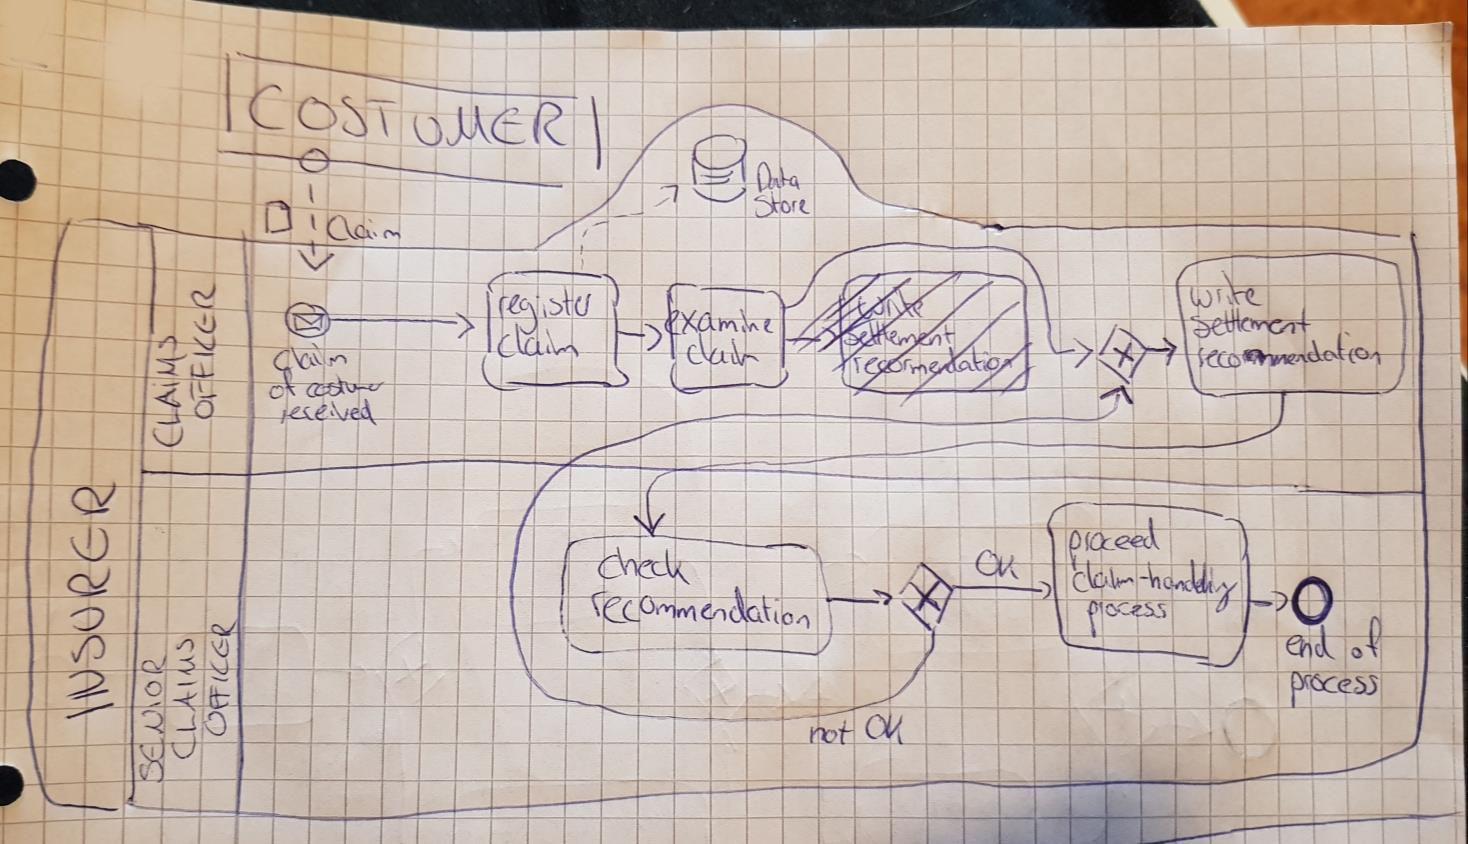 COSTUMER
Data
Store
Claim
CLAIMS
OFFICER
claim
of costumer
received
register
claim
examine
claim
write
settlement
recormendation
write
settlement
recommendation
INSURER
SENIOR
CLAIMS
OFFICER
check
recommendation
OK
not OK
proceed
claim-handling
process
end of
process